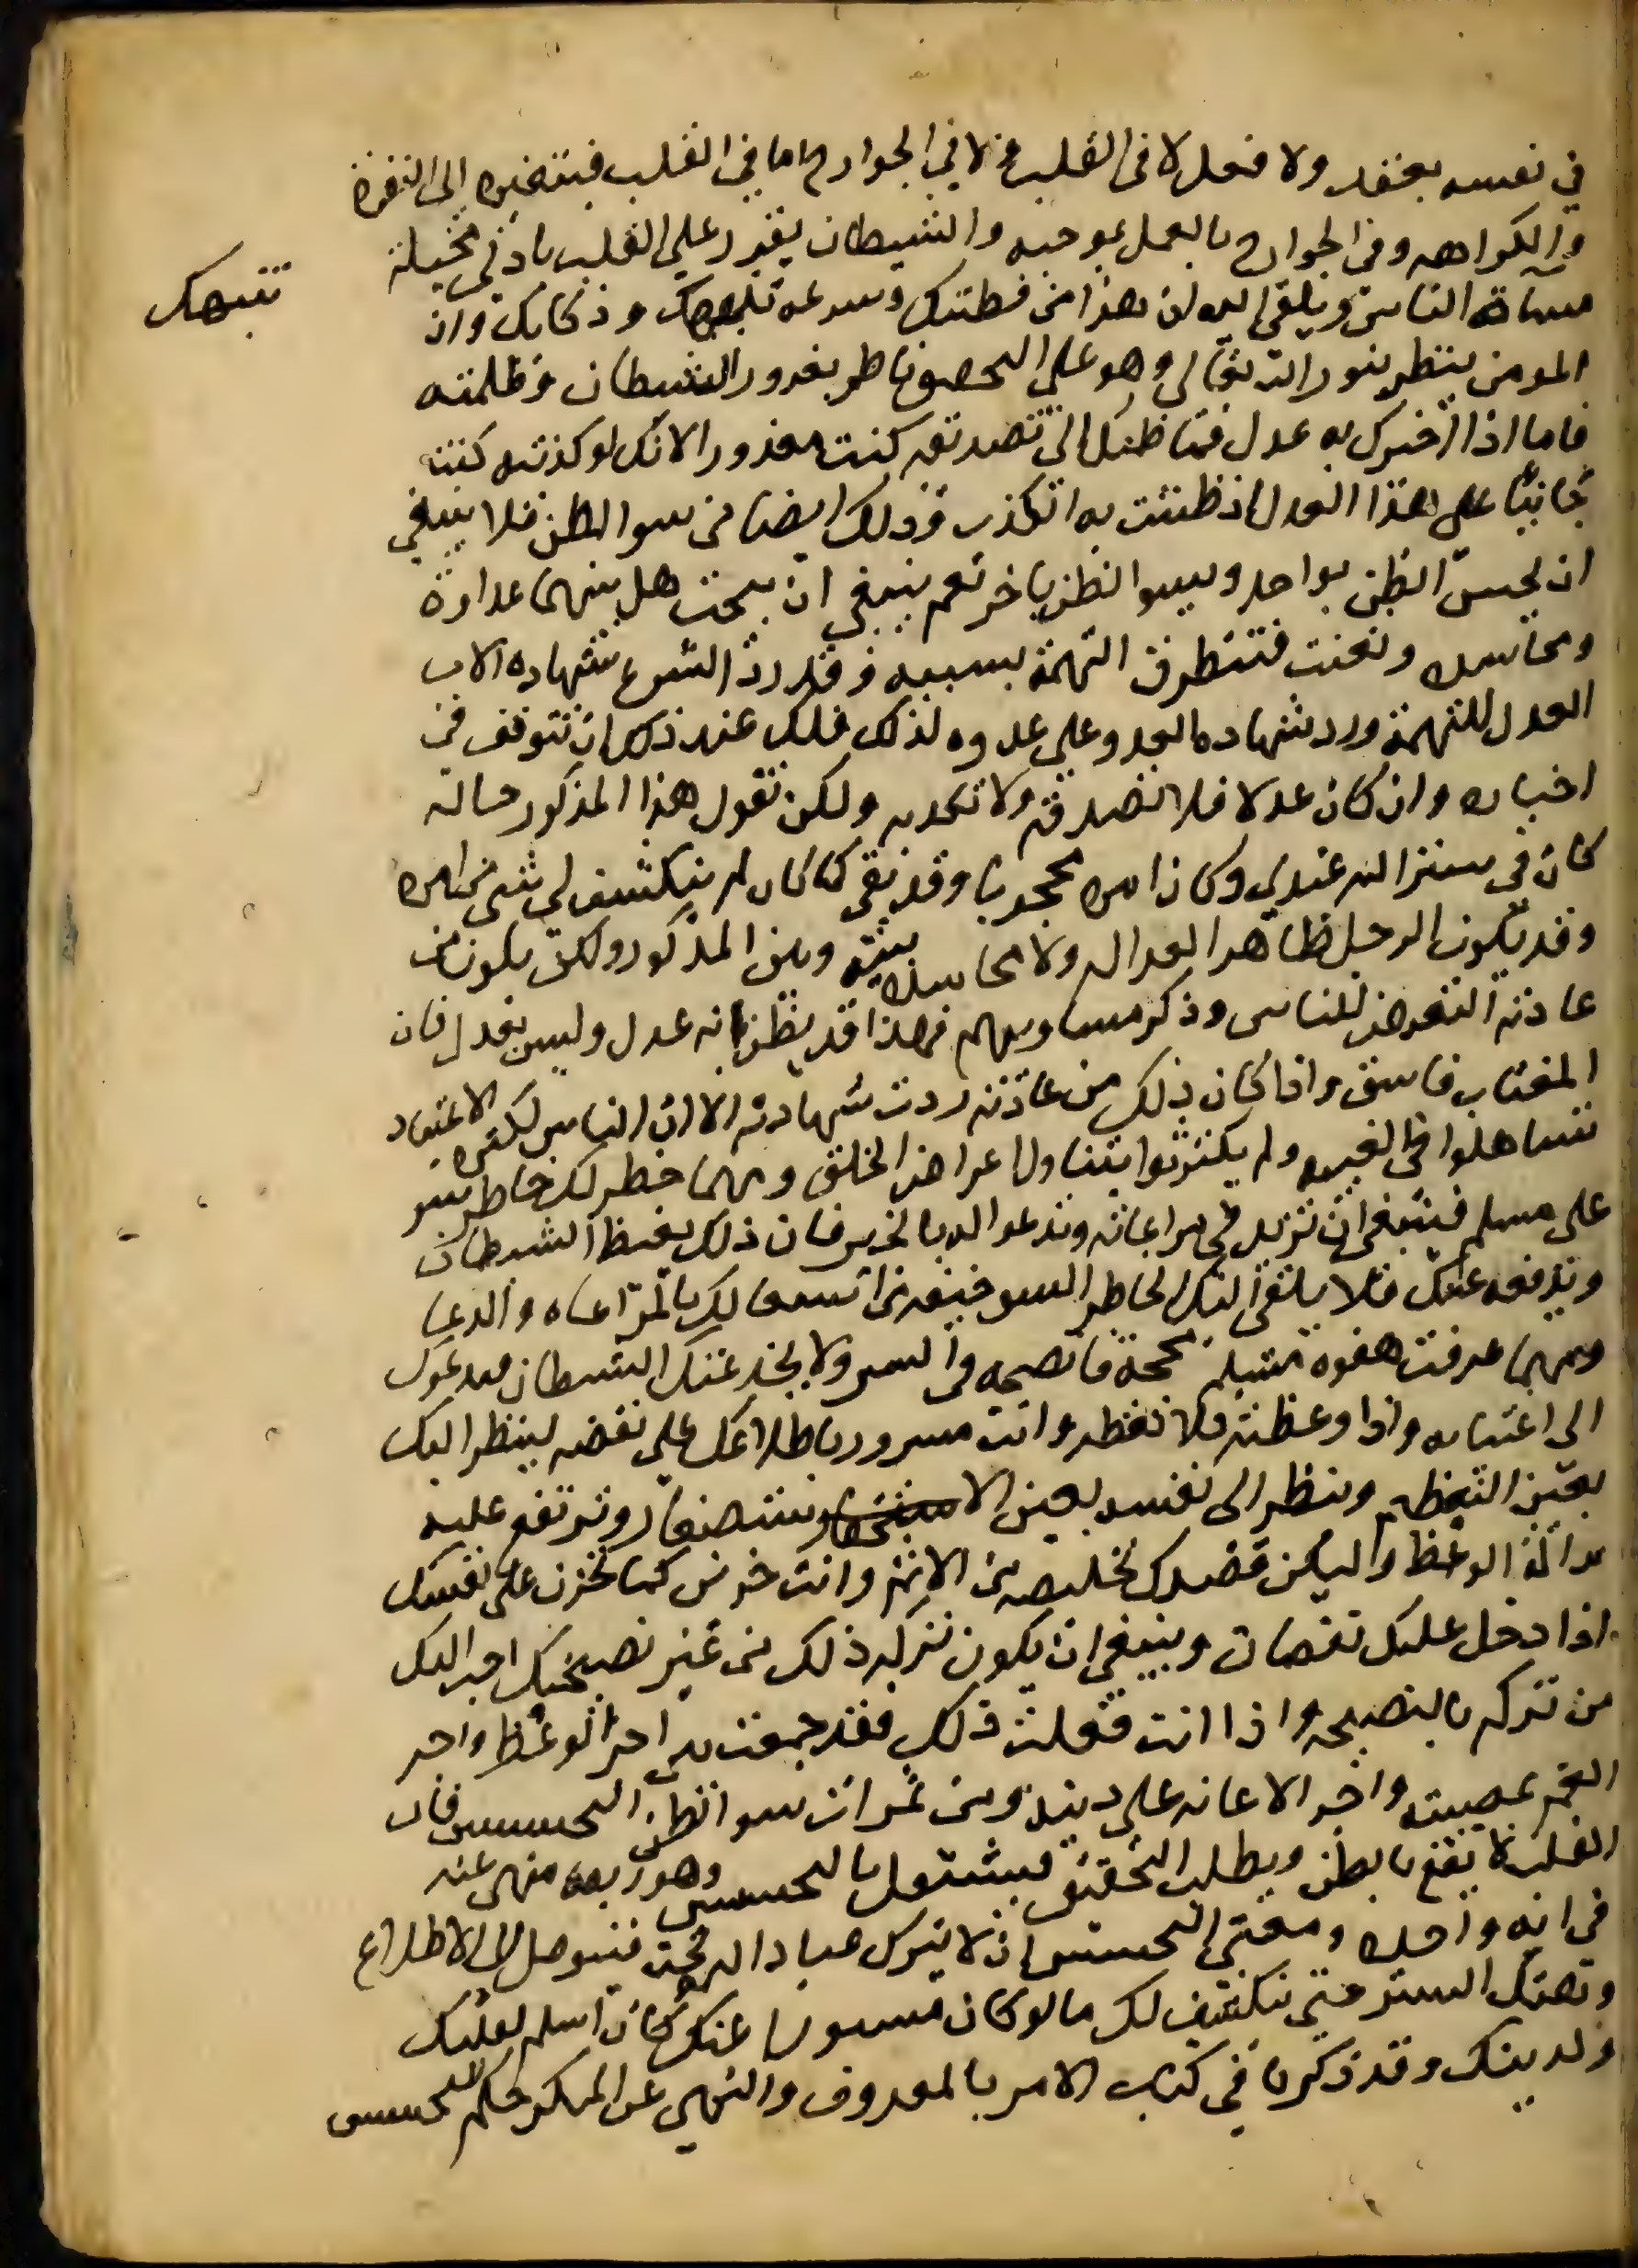 في نفسه بعقد ولا فعل لا في القلب ولا في الجوارح اما في القلب فبتغيره الى النفرة
والكراهه وفي الجوارح بالعمل بموجبه والشيطان يقرر على القلب بادنى مخيلة
مساة الناس ويلقي اليه ان هذا من فطنتك وسرعه تنبهك وذكايك وان
تنبهك
المومن ينظر بنور الله تعالى وهو على التحقيق ناظر بغرور الشيطان وظلمته
فاما اذا اخبرك به عدل فمال ظنك الى تصديقه كنت معذورا لانك لو كذبته كنت
جانيا على هذا العدل اذ ظننت به الكذب وذلك ايضا من سوا الظن فلا ينبغي
ان تحسن الظن بواحد وتسيو الظن باخر نعم ينبغي ان تبحث هل بينهما عداوة
ومحاسده وتعنت فتتطرق التهمة بسببه وقد رد الشرع شهاده الاب
العدل للتهمة ورد شهاده العدو على عدوه لذلك فلك عند ذلك ان تتوقف في
اخباره وان كان عدلا فلا تصدقه ولا تكذبه ولكن تقول هذا المذكور حاله
كان في ستر الله عندي وكان امره محجوبا وقد بقي كما كان لم ينكشف لي شي من امره
وقد يكون الرجل ظاهر العداله ولا محاسده بينه وبين المذكور ولكن يكون من
عادته التعرض للناس وذكر مساويهم فهذا قد يظن انه عدل وليس بعدل فان
المغتاب فاسق واذا كان ذلك من عادته ردت شهادته الا ان الناس لكثره الاعتياد
تساهلوا في الغيبه ولم يكترثوا بتناول اعراض الخلق ومهما خطر لك خاطر بسو
على مسلم فينبغي ان تزيد في مراعاته وتدعو الله له بالخير فان ذلك يغيظ الشيطان
ويدفعه عنك فلا يلقي اليك الخاطر السو خيفه من اشتغالك بالمراعاه والدعا
ومهما عرفت هفوه مسلم بحجة فانصحه في السر ولا يخدعنك الشيطان فيدعوك
الى اغتيابه واذا وعظته فلا تعظه وانت مسرور باطلاعك على نقصه لينظر اليك
بعين التعظيم وتنظر الى نفسه بعين الاستصغار وترتفع عليه
بدالة الوعظ وليكن قصدك تخليصه من الاثم وانت حزين كما تحزن على نفسك
اذا دخل عليك نقصان وينبغي ان يكون تركه ذلك من غير نصيحتك احب اليك
من تركه بالنصيحه واذا انت فعلت ذلك فقد جمعت بين اجر الوعظ واجر
الغم بمصيبته واجر الاعانه على دينه ومن ثمرات سو الظن التجسس فان
القلب لا يقنع بالظن ويطلب التحقيق فيشتغل بالتجسس وهو منهي عنه
في ايه واحده ومعنى التجسس ان لا يترك عباد الله تحت فيتوصل الى الاطلاع
وتهتك الستر حتى ينكشف لك ما لو كان مستورا عنك كان اسلم لقلبك
ولدينك وقد ذكرنا في كتاب الامر بالمعروف والنهي عن المنكر حكم التجسس